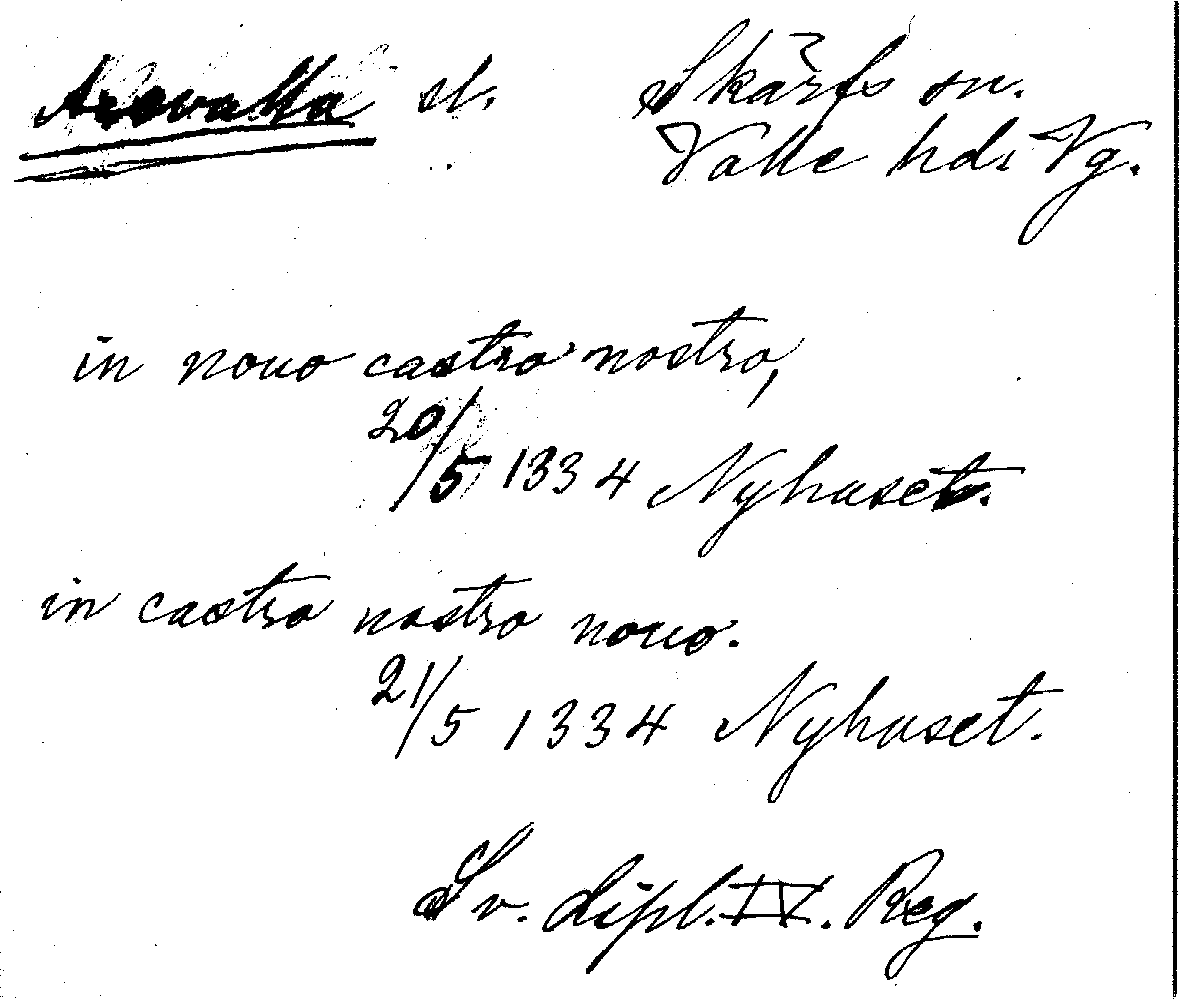 Axevalla sl. Skärfs sn.
Valle hd. Vg.
in nouo castro nostro,
20/5 1334 Nyhuset.
in castro nostro nouo.
21/5 1334 Nyhuset.
Sv. dipl. IV. Reg.